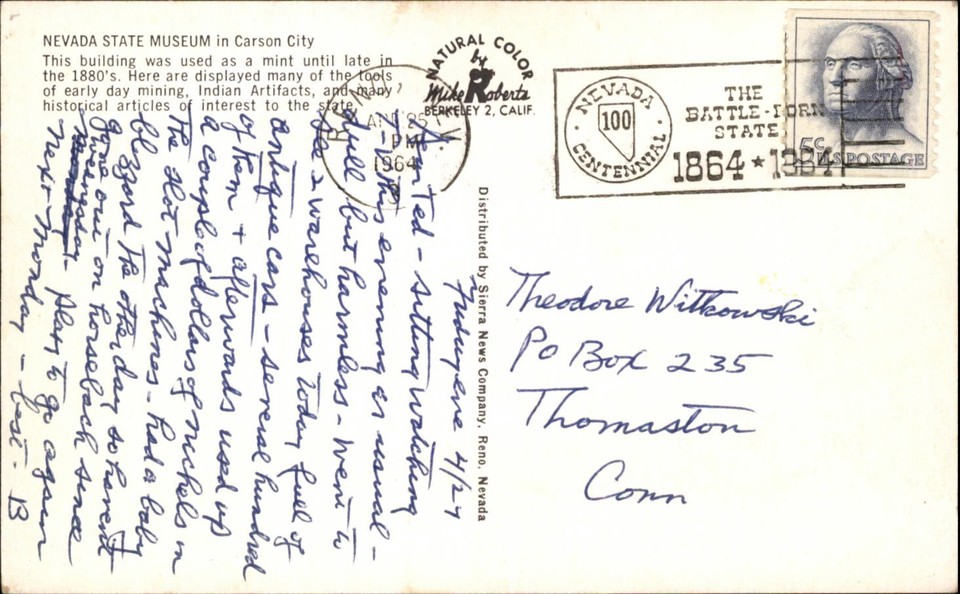 NEVADA STATE MUSEUM in Carson City
This building was used as a mint until late in
the 1880's. Here are displayed many of the tools
of early day mining, Indian Artifacts, and many
historical articles of interest to the state.
NATURAL COLOR
by
Mike Roberts
BERKELEY 2, CALIF.
PM
1964
NEVADA
100
CENTENNIAL
THE
BATTLE-BORN
STATE
1864 ★ 1964
5c
U.S. POSTAGE
Distributed by Sierra News Company, Reno, Nevada
4/24
Ted - sitting watching
T-V this evening as usual -
dull but harmless - went to
2 warehouses today full of
antique cars - several hundred
of them + afterwards used up
a couple of dollars of nickels in
the slot machines - had a baby
blizzard the other day so haven't
gone out on horseback since
Plan to go again
next Monday - best - B
Theodore Witkowski
PO Box 235
Thomaston
Conn